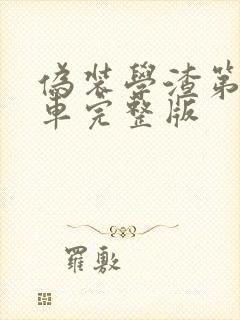 偽裝學渣第
車完整版
羅敷